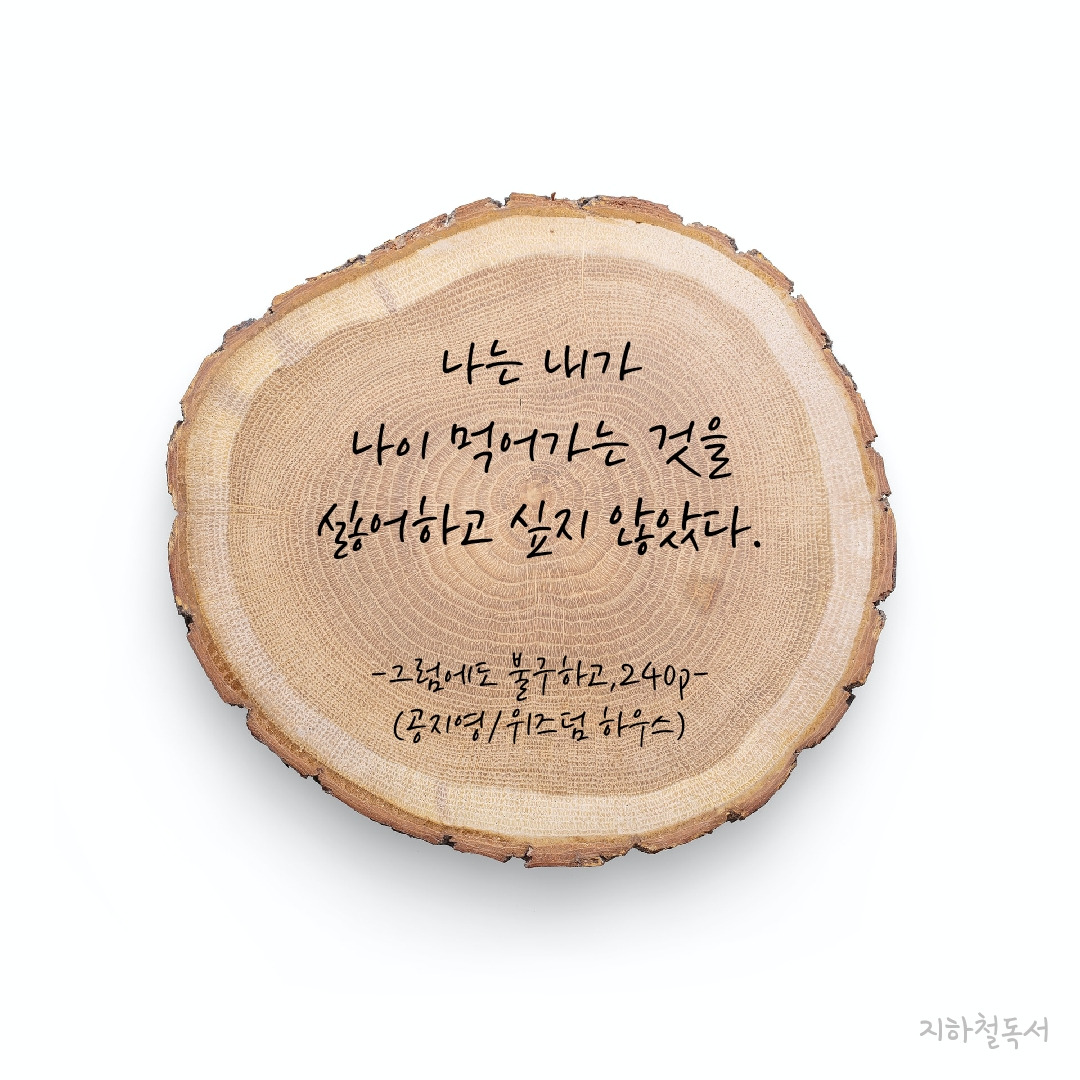 나는 내가
나이 먹어가는 것을
싫어하고 싶지 않았다.
-그럼에도 불구하고,240p-
(공지영/위즈덤 하우스)
지하철독서